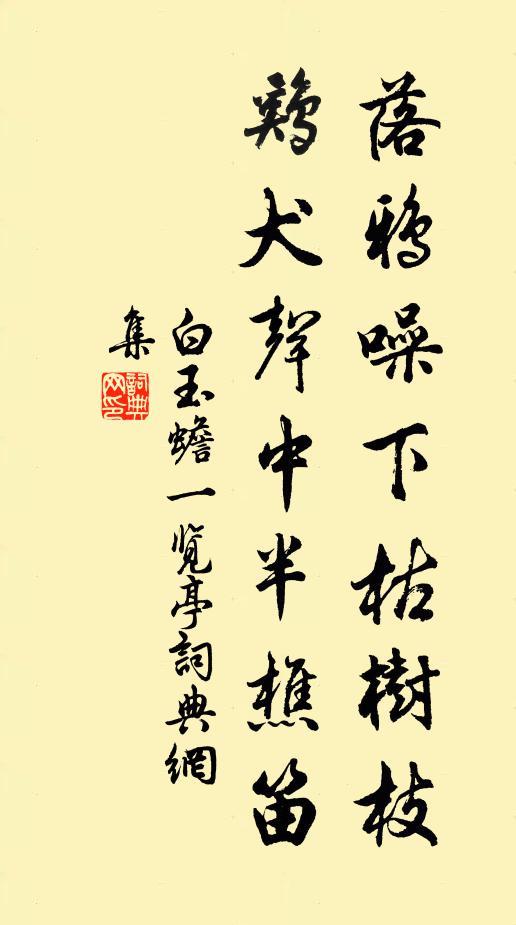 落鴉噪下枯樹枝
鷄犬聲中半樵笛
白玉蟾一覽亭詞典網
集
詞典
网印